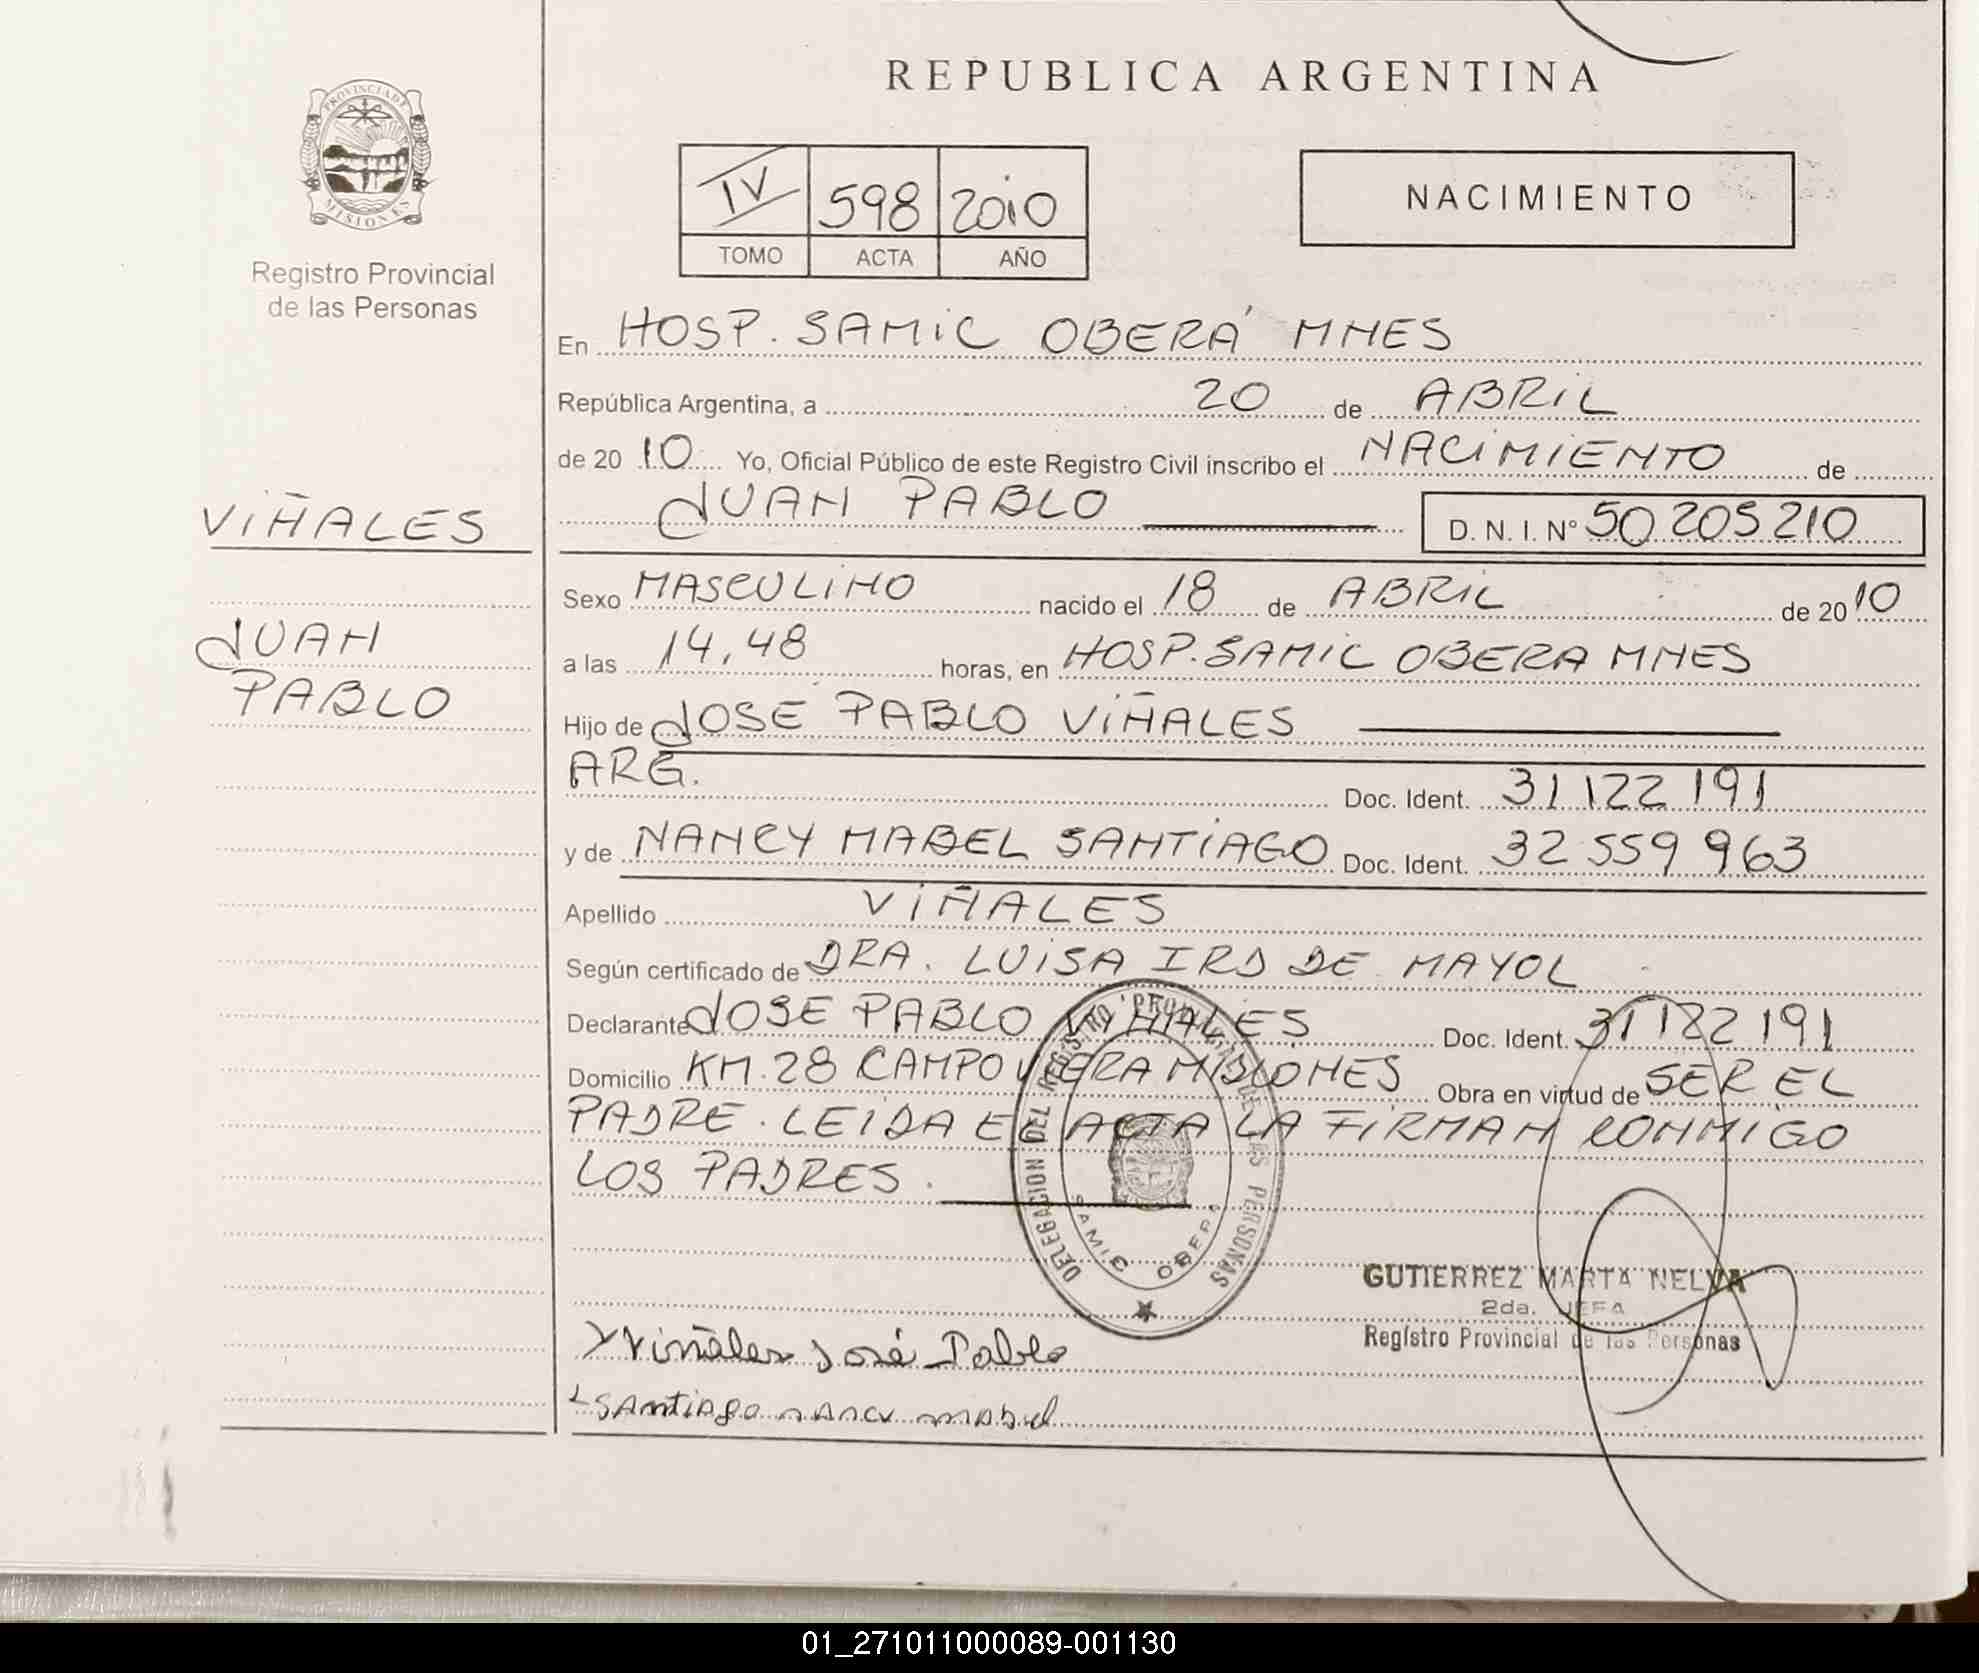 REPUBLICA ARGENTINA
PROVINCIA DE
MISIONES
Registro Provincial
de las Personas
IV 598 2010
TOMO ACTA AÑO
NACIMIENTO
En HOSP. SAMIC OBERÁ MNES
República Argentina, a 20 de ABRIL
de 20 10 Yo, Oficial Público de este Registro Civil inscribo el NACIMIENTO de
JUAN PABLO D. N. I. N° 50 205 210
VIÑALES
JUAN
PABLO
Sexo MASCULINO nacido el 18 de ABRIL de 20 10
a las 14,48 horas, en HOSP. SAMIC OBERA MNES
Hijo de JOSE PABLO VIÑALES
ARG. Doc. Ident. 31 122 191
y de NANCY MABEL SANTIAGO Doc. Ident. 32 559 963
Apellido VIÑALES
Según certificado de DRA. LUISA IRD DE MAYOL
Declarante JOSE PABLO VIÑALES Doc. Ident. 31 122 191
Domicilio KM. 28 CAMPO VIERA MISIONES Obra en virtud de SER EL
PADRE. LEIDA EL ACTA LA FIRMAN CONMIGO
LOS PADRES.
DELEGACION DEL REGISTRO PROVINCIAL DE LAS PERSONAS
SAMIC OBERA
GUTIERREZ MARTA NELVA
2da. JEFA
Registro Provincial de las Personas
Viñales José Pablo
Santiago nancy mabel
01_271011000089-001130